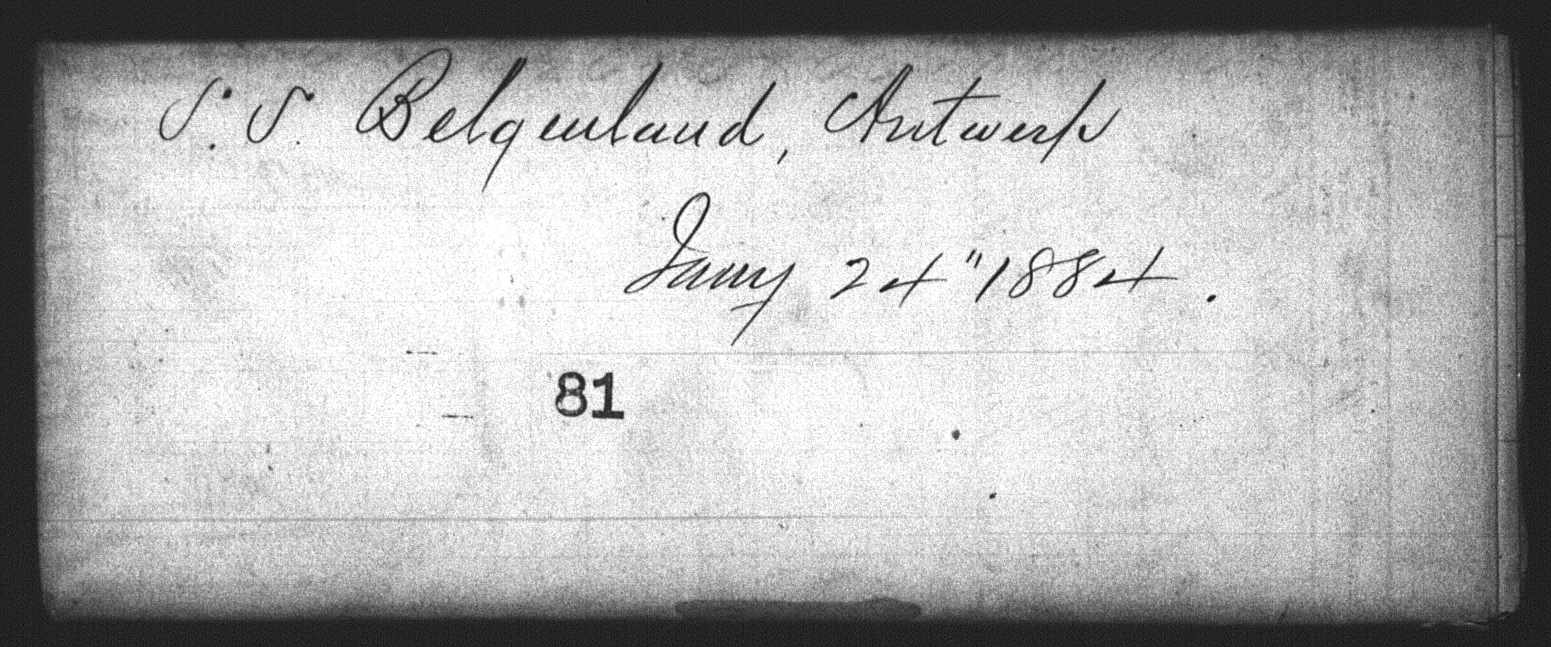 S.S. Belgenland, Antwerp
Jany 24" 1884.
81